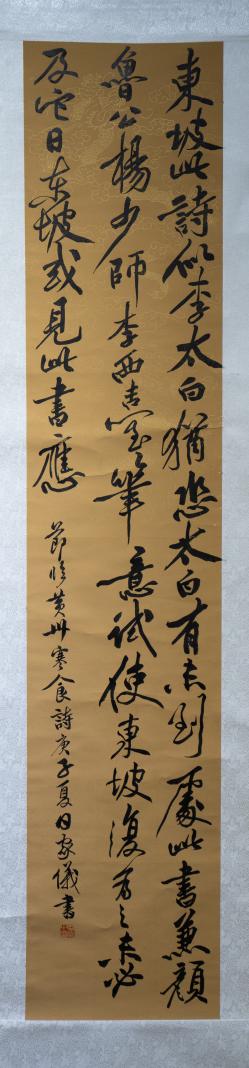 東坡此詩似李太白猶恐太白有未到處此書兼顏
魯公楊少師李西臺筆意試使東坡復為之未必
及它日东坡或見此書應
節臨黃州寒食詩庚子夏日家儀書